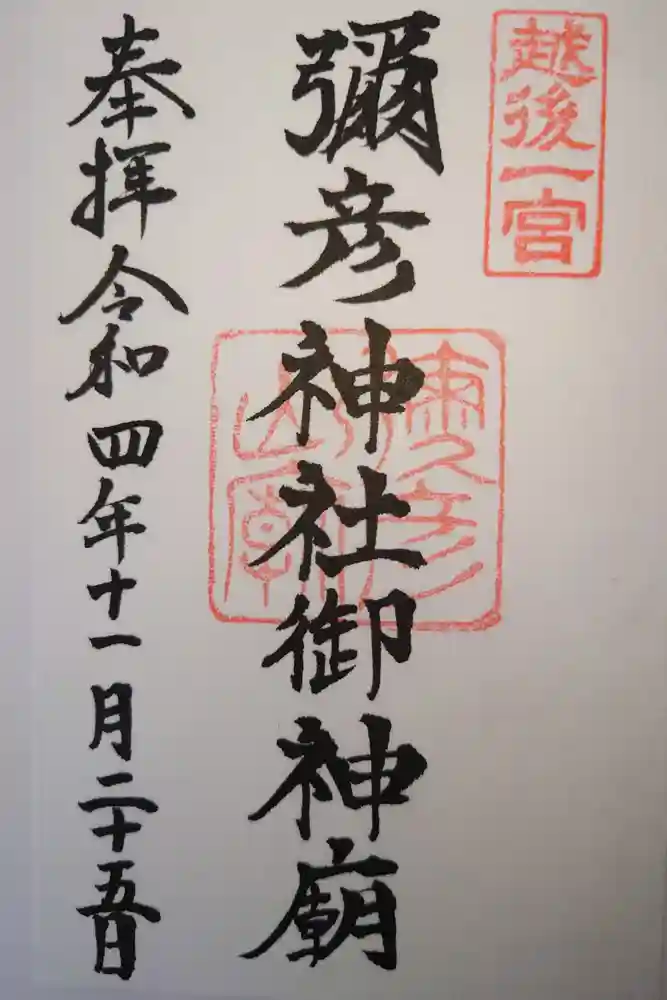 越後一宮
彌彦神社御神廟
奉拝 令和四年十一月二十五日